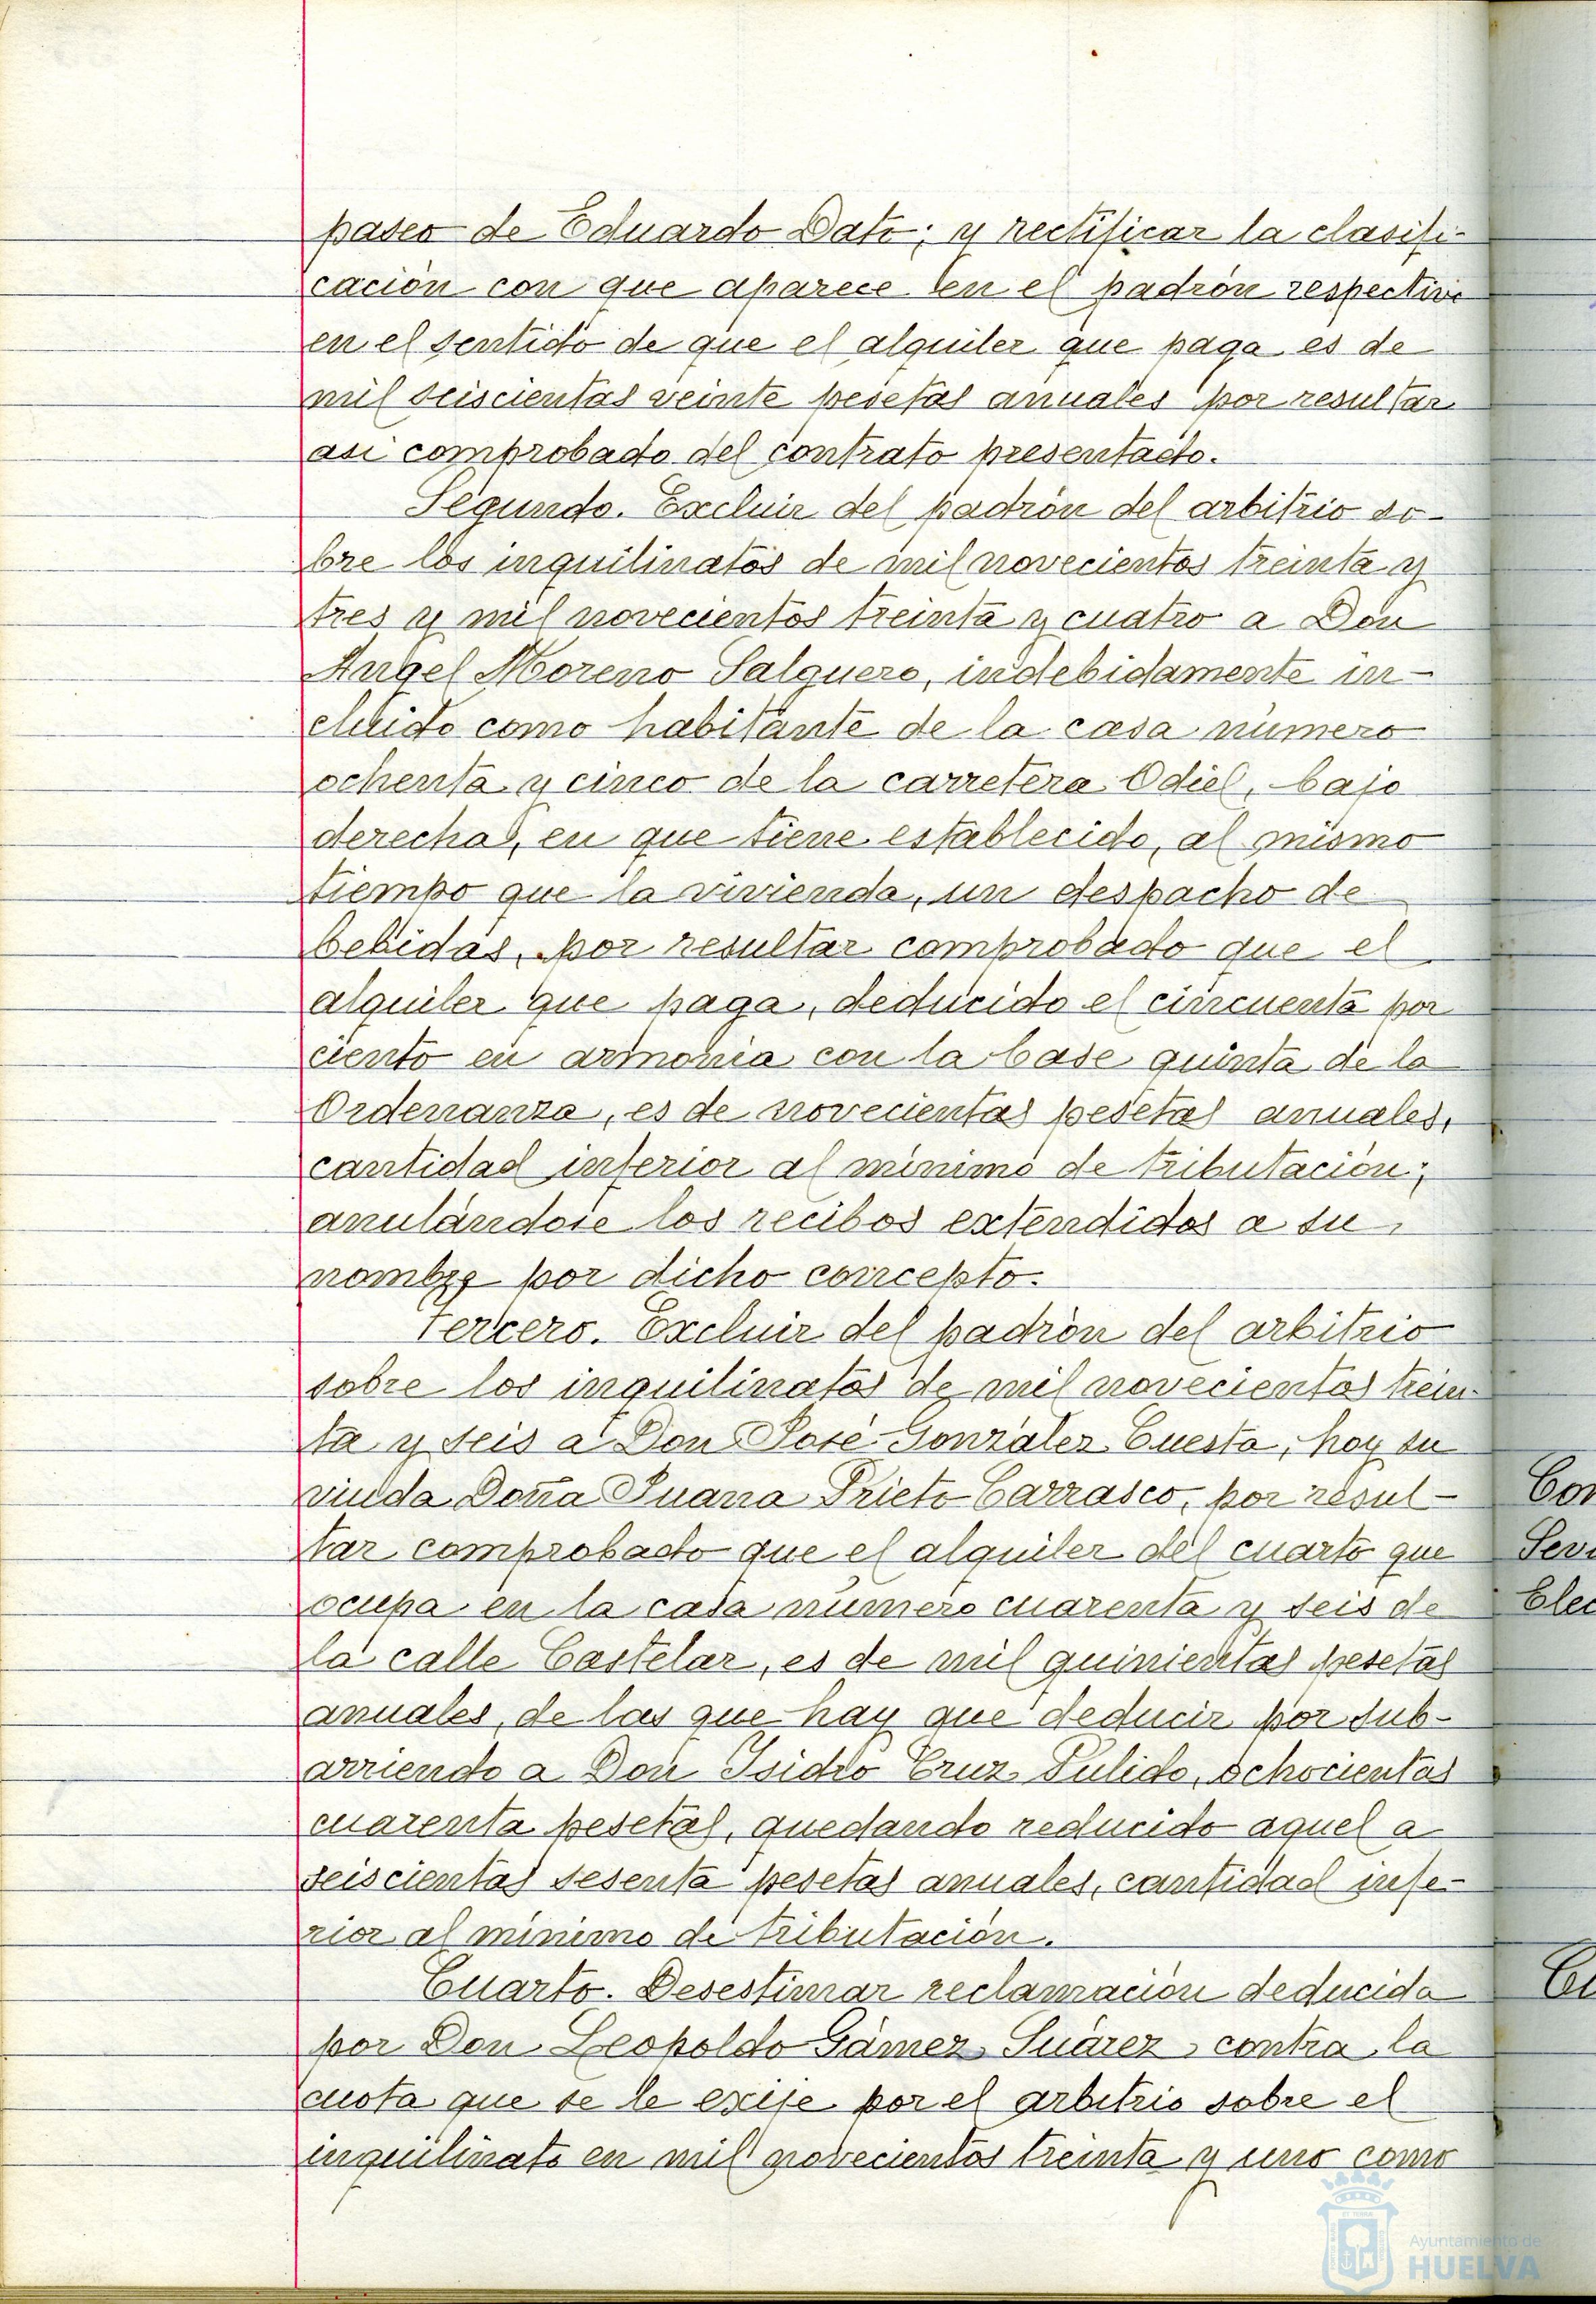 paseo de Eduardo Dato; y rectificar la clasifi-
cación con que aparece en el padrón respectivo
en el sentido de que el alquiler que paga es de
mil seiscientas veinte pesetas anuales por resultar
asi comprobado del contrato presentado.
Segundo. Excluir del padrón del arbitrio so-
bre los inquilinatos de mil novecientos treinta y
tres y mil novecientos treinta y cuatro a Don
Angel Moreno Salguero, indebidamente in-
cluido como habitante de la casa número
ochenta y cinco de la carretera Odiel, bajo
derecha, en que tiene establecido, al mismo
tiempo que la vivienda, un despacho de
bebidas, por resultar comprobado que el
alquiler que paga, deducido el cincuenta por
ciento en armonia con la base quinta de la
Ordenanza, es de novecientas pesetas anuales,
cantidad inferior al mínimo de tributación;
anulándose los recibos extendidos a su
nombre por dicho concepto.
Tercero. Excluir del padrón del arbitrio
sobre los inquilinatos de mil novecientos trein-
ta y seis a Don José González Cuesta, hoy su
viuda Doña Juana Prieto Carrasco, por resul-
tar comprobado que el alquiler del cuarto que
ocupa en la casa número cuarenta y seis de
la calle Castelar, es de mil quinientas pesetas
anuales, de las que hay que deducir por sub-
arriendo a Don Isidro Cruz Pulido, ochocientas
cuarenta pesetas, quedando reducido aquel a
seiscientas sesenta pesetas anuales, cantidad infe-
rior al mínimo de tributación.
Cuarto. Desestimar reclamación deducida
por Don Leopoldo Gámez Suárez contra la
cuota que se le exije por el arbitrio sobre el
inquilinato en mil novecientos treinta y uno como
Ayuntamiento de
HUELVA